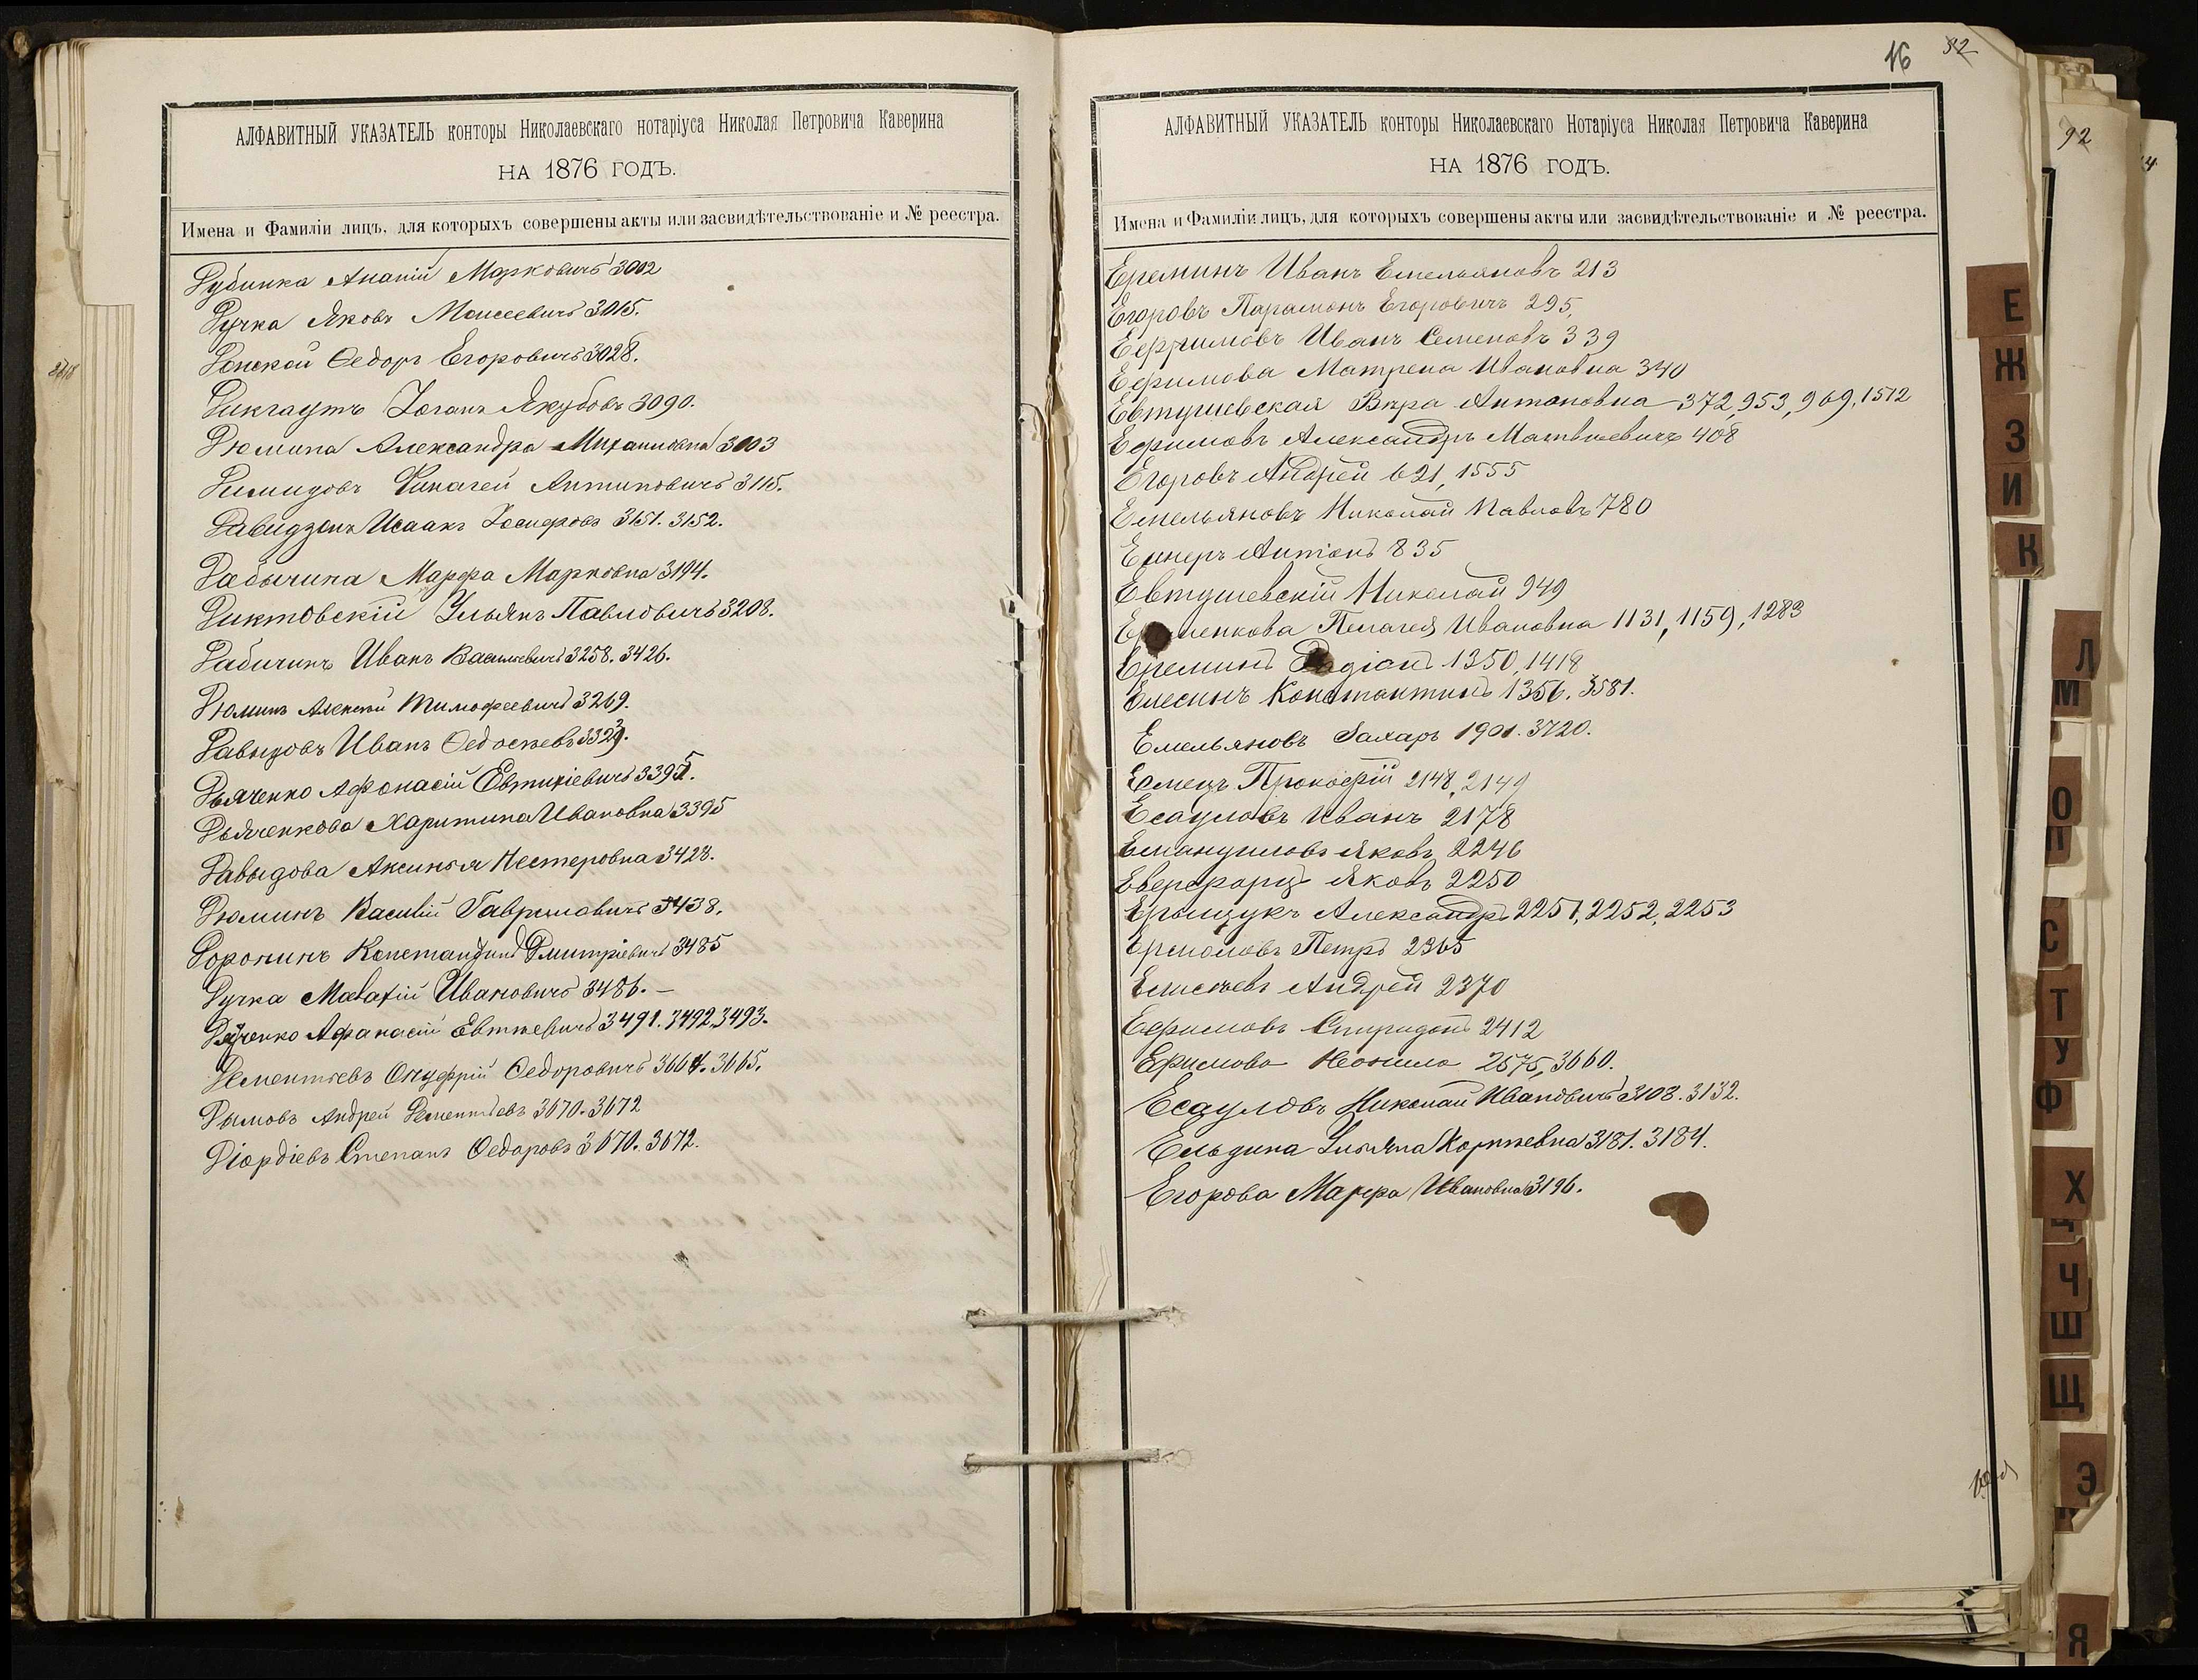 АЛФАВИТНЫЙ УКАЗАТЕЛЬ конторы Николаевскаго нотаріуса Николая Петровича Каверина
НА 1876 ГОДЪ.
Имена и Фамиліи лицъ, для которыхъ совершены акты или засвидѣтельствованіе и № реестра.
Дубинка Ананій Марковичъ 3002
Дучка Яковъ Моисеевичъ 3015.
Донской Ѳедоръ Егоровичъ 3028.
Дикгаутъ Іоганъ Якубовъ 3090.
Дюмина Александра Михаиловна 3103
Антиповичъ 3115.
Исаакъ Іосифовъ 3151. 3152.
Дабычина Марфа Марковна 3194.
Диктовскій Ульянъ Павловичъ 3208.
Дабичинъ Иванъ Васильевичъ 3258. 3426.
Дюминъ Алексѣй Тимофеевичъ 3269.
Давыдовъ Иванъ Ѳедосѣевъ 3329.
Дьяченко Афонасій Евтихіевичъ 3395.
Дьяченкова Харитина Ивановна 3395
Давыдова Аксинья Нестеровна 3428.
Дюминъ Василій Гавриловичъ 3438.
Доронинъ Константинъ Дмитріевичъ 3485
Дучка Малафій Ивановичъ 3486. —
Дяченко Афанасій Евтѣевичъ 3491. 3492. 3493.
Дементьевъ Онуфрій Ѳедоровичъ 3664. 3665.
Дымовъ Андрей Дементьевъ 3670. 3672
Діордіевъ Степанъ Ѳедоровъ 3670. 3672.
16 32
АЛФАВИТНЫЙ УКАЗАТЕЛЬ конторы Николаевскаго Нотаріуса Николая Петровича Каверина
НА 1876 ГОДЪ.
Имена и Фамиліи лицъ, для которыхъ совершены акты или засвидѣтельствованіе и № реестра.
Ереминъ Иванъ Емельяновъ 213
Егоровъ Парамонъ Егоровичъ 295,
Ефимовъ Иванъ Семеновъ 339
Ефимова Матрена Ивановна 340
Евтушевская Вѣра Антоновна 372, 953, 969, 1512
Ефимовъ Александръ Матвѣевичъ 408
Егоровъ Андрей 621, 1555
Емельяновъ Николай Павловъ 780
Антонъ 835
Евтушевскій Николай 949
Пелагея Ивановна 1131, 1159, 1283
Ереминъ Родіонъ 1350, 1418
Елесинъ Константинъ 1356. 3581.
Емельяновъ Захаръ 1901. 3720.
Емецъ Прокофій 2148, 2149
Есауловъ Иванъ 2178
Емануиловъ Яковъ 2246
Яковъ 2250
Ерощукъ Александръ 2251, 2252, 2253
Ермоловъ Петръ 2365
Елисѣевъ Андрей 2370
Ефимовъ Спиридонъ 2412
Ефимова Неонила 2575, 3660.
Есауловъ Николай Ивановичъ 3108. 3132.
Ельдина Ульяна Корнѣевна 3181. 3184.
Егорова Марфа Ивановна 3196.
92
Е
Ж
З
И
К
Л
М
О
П
С
Т
У
Ф
Х
Ч
Ш
Щ
Э
Я